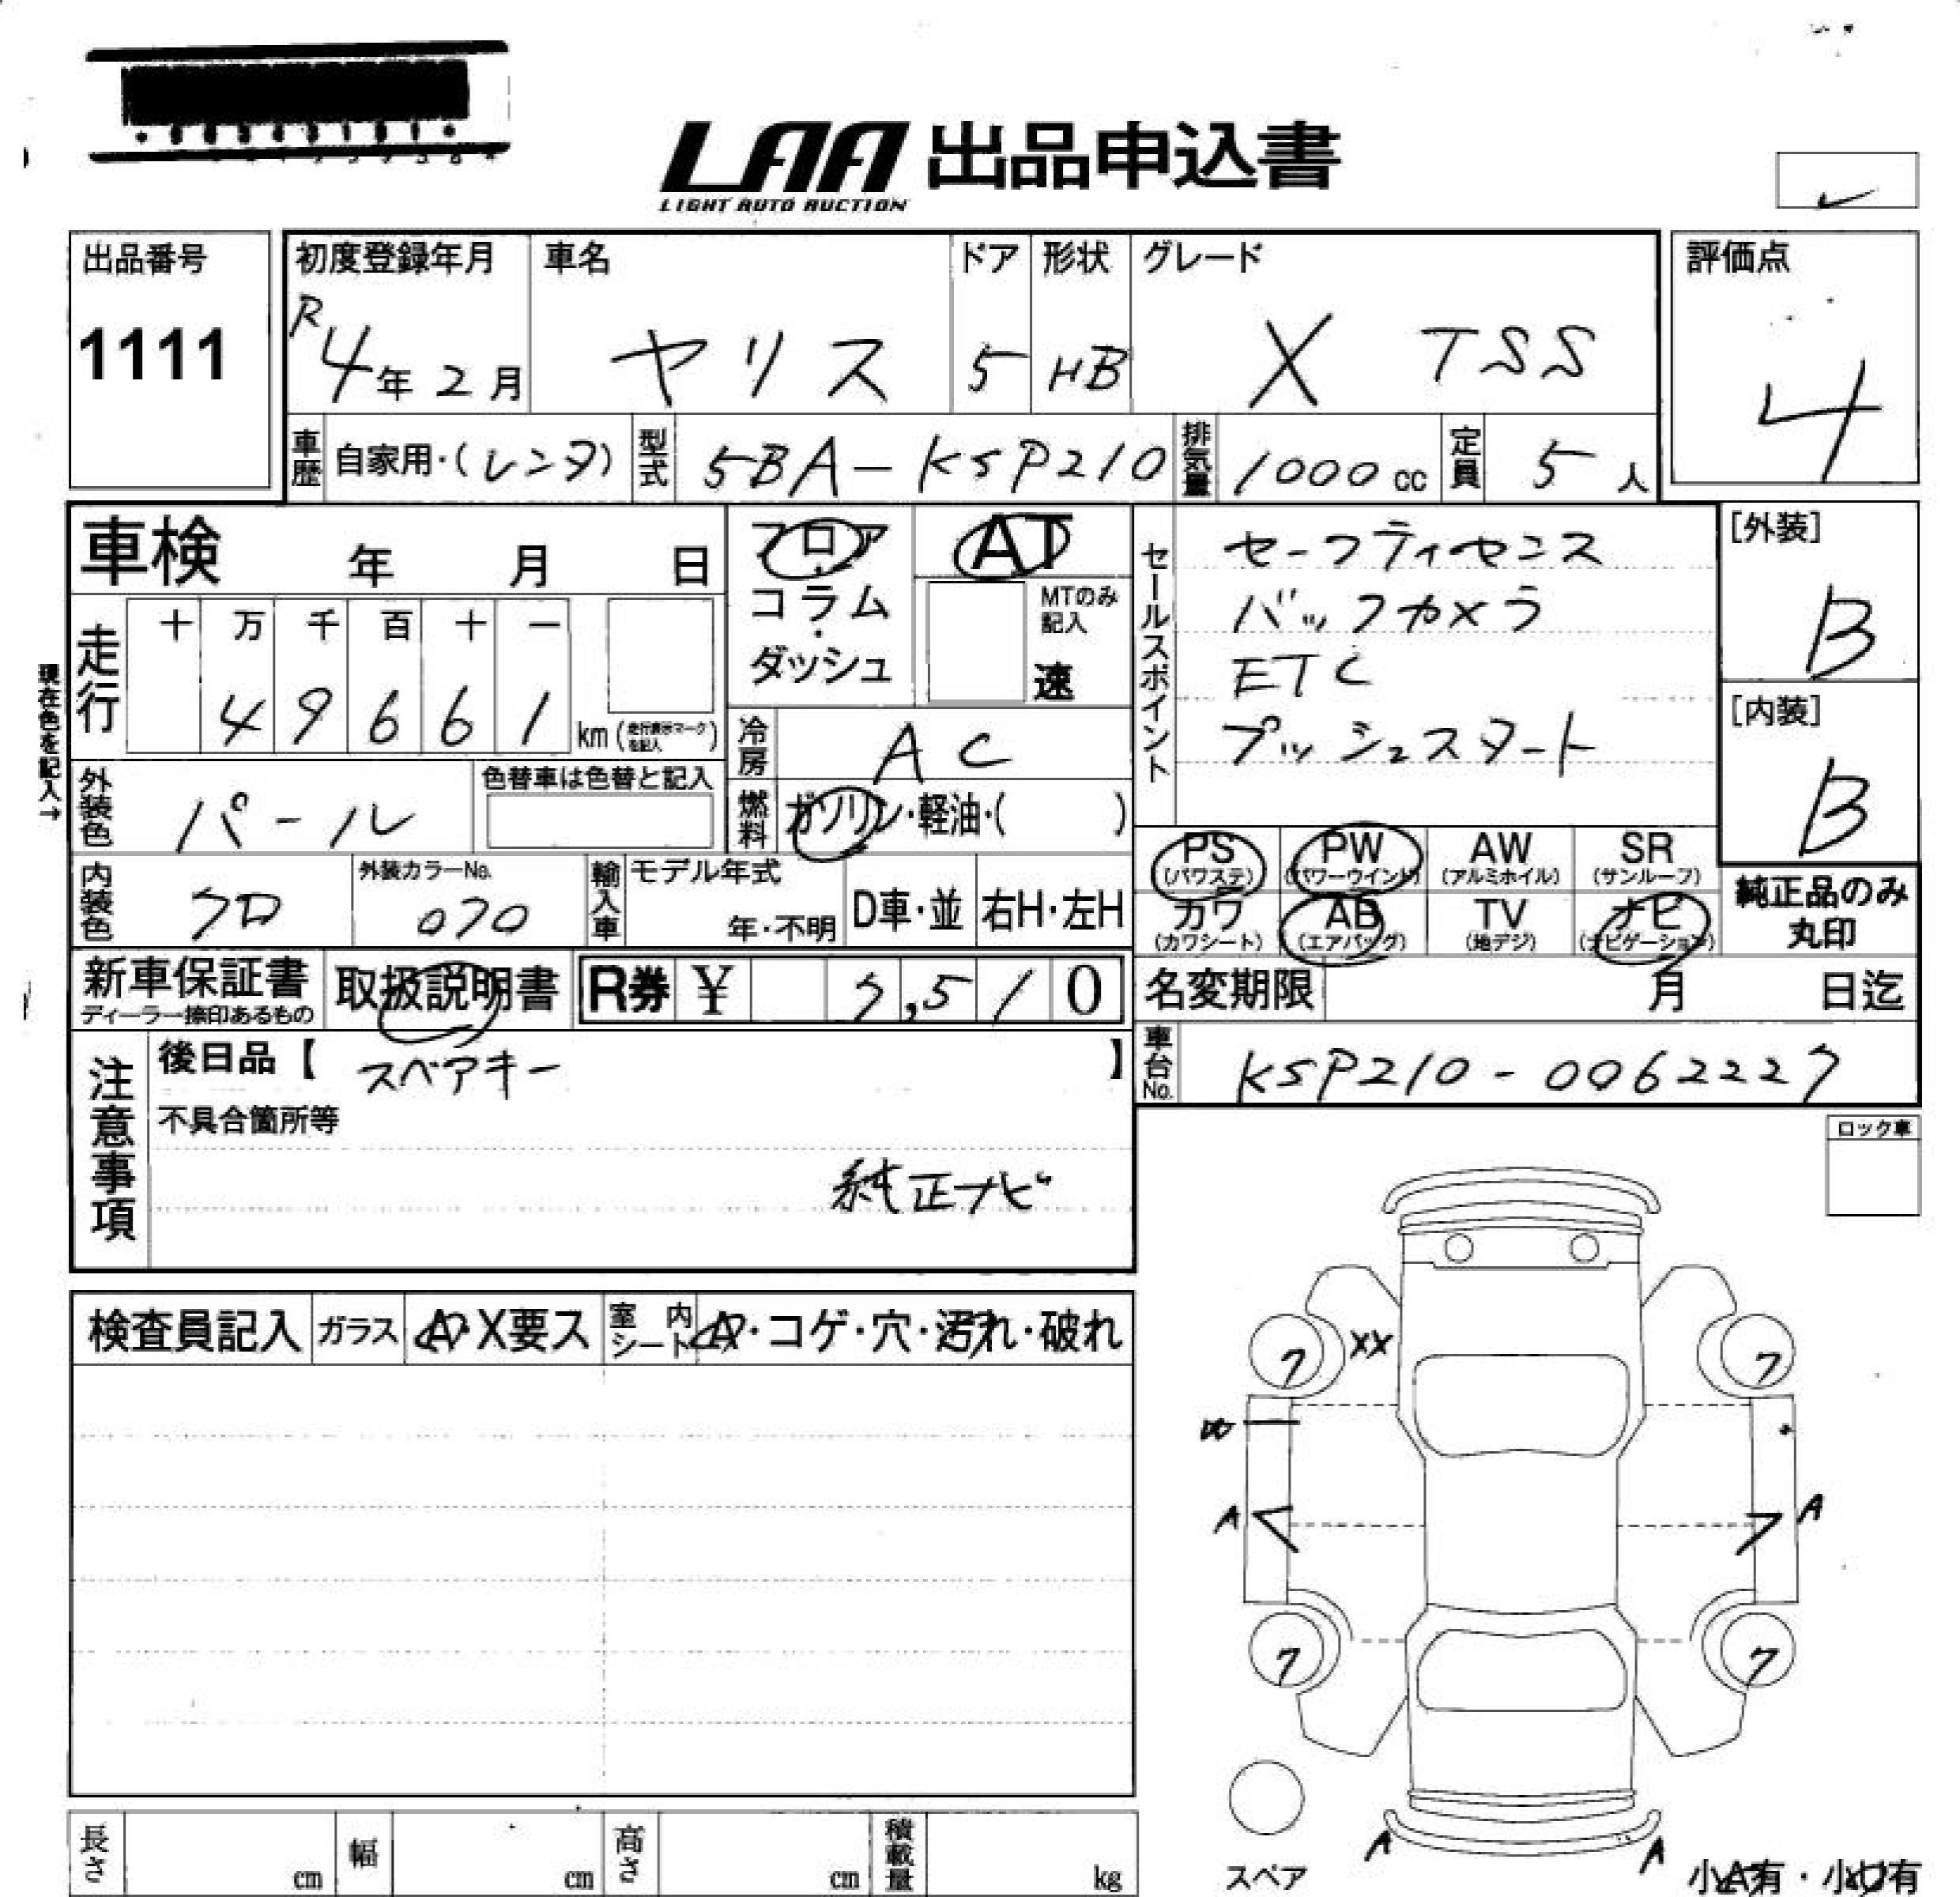 LAA 出品申込書
LIGHT AUTO AUCTION
出品番号
1111
初度登録年月
R4年2月
車名
ヤリス
ドア
5
形状
HB
グレード
X TSS
評価点
4
車歴
自家用・(レンタ)
型式
5BA-KSP210
排気量
1000 cc
定員
5人
車検 年 月 日
フロア・コラム・ダッシュ
AT
MTのみ記入
速
セールスポイント
セーフティセンス
バックカメラ
ETC
プッシュスタート
[外装]
B
[内装]
B
現在色を記入→
走行
十 万 千 百 十 一
4 9 6 6 1 km (走行表示マークを記入)
冷房
AC
外装色
パール
色替車は色替と記入
燃料
ガソリン・軽油・( )
PS
(パワステ)
PW
(パワーウインド)
AW
(アルミホイル)
SR
(サンルーフ)
カワ
(カワシート)
AB
(エアバッグ)
TV
(地デジ)
ナビ
(ナビゲーション)
純正品のみ
丸印
内装色
クロ
外装カラーNo.
070
輸入車
モデル年式
年・不明
D車・並
右H・左H
新車保証書
ディーラー捺印あるもの
取扱説明書
R券 ¥ 7,510
名変期限 月 日迄
車台No.
KSP210-0062227
注意事項
後日品【 スペアキー 】
不具合箇所等
純正ナビ
ロック車
検査員記入
ガラス
A・X要ス
室内シート
A・コゲ・穴・汚れ・破れ
7 XX 7
W
A A
7 7
A A
スペア
小A有・小U有
長さ cm
幅 cm
高さ cm
積載量 kg